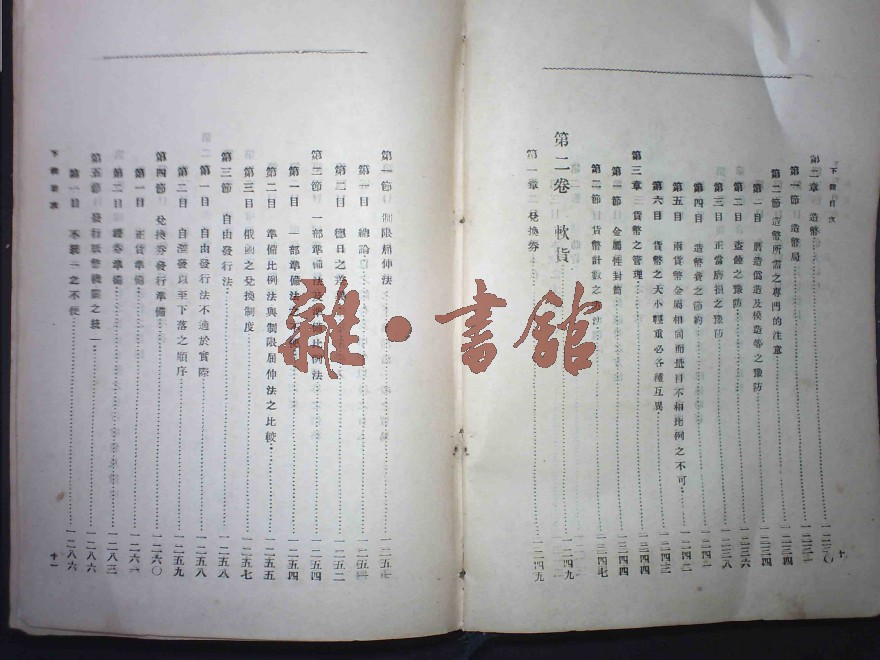 下冊目次
第二章 造幣 一二三〇
第一節 造幣局 一二三一
第二節 造幣所需之專門的注意 一二三四
第一目 贋造僞造及模造等之豫防 一二三四
第二目 盜蝕之豫防 一二三六
第三目 正當磨損之豫防 一二三八
第四目 造幣費之節約 一二四一
第五目 兩貨幣金屬相同而量目不相比例之不可 一二四二
第六目 貨幣之大小輕重必各種互異 一二四三
第三章 貨幣之管理 一二四四
第一節 金屬性封筒 一二四四
第二節 貨幣計數之 法 一二四七
第二卷 軟貨 一二四九
第一章 兌換券 一二四九
十
第一節 制限屈伸法
第一目 總論
第二目 德日之差異 一二五二
第二節 一部準備法及準備比例法 一二五四
第一目 一部準備法之 一二五四
第二目 準備比例法與制限屈伸法之比較 一二五五
第三目 俄國之兌換制度 一二五七
第三節 自由發行法 一二五八
第一目 自由發行法不適於實際 一二五八
第二目 自濫發以至下落之順序 一二五九
第四節 兌換券發行準備 一二六〇
第一目 正貨準備 一二六一
第二目 證券準備 一二八三
第五節 發行紙幣機關之統一 一二八六
第一目 不統一之不便 一二八六
下冊目次
十一
雜·書館